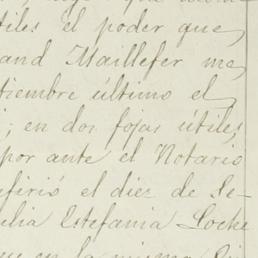 tiles el poder que
and Maillefer me
tiembre último el
; en dos fojas útiles
por ante el Notario
firió el diez de Se-
ilia Estefania Locke
en la misma